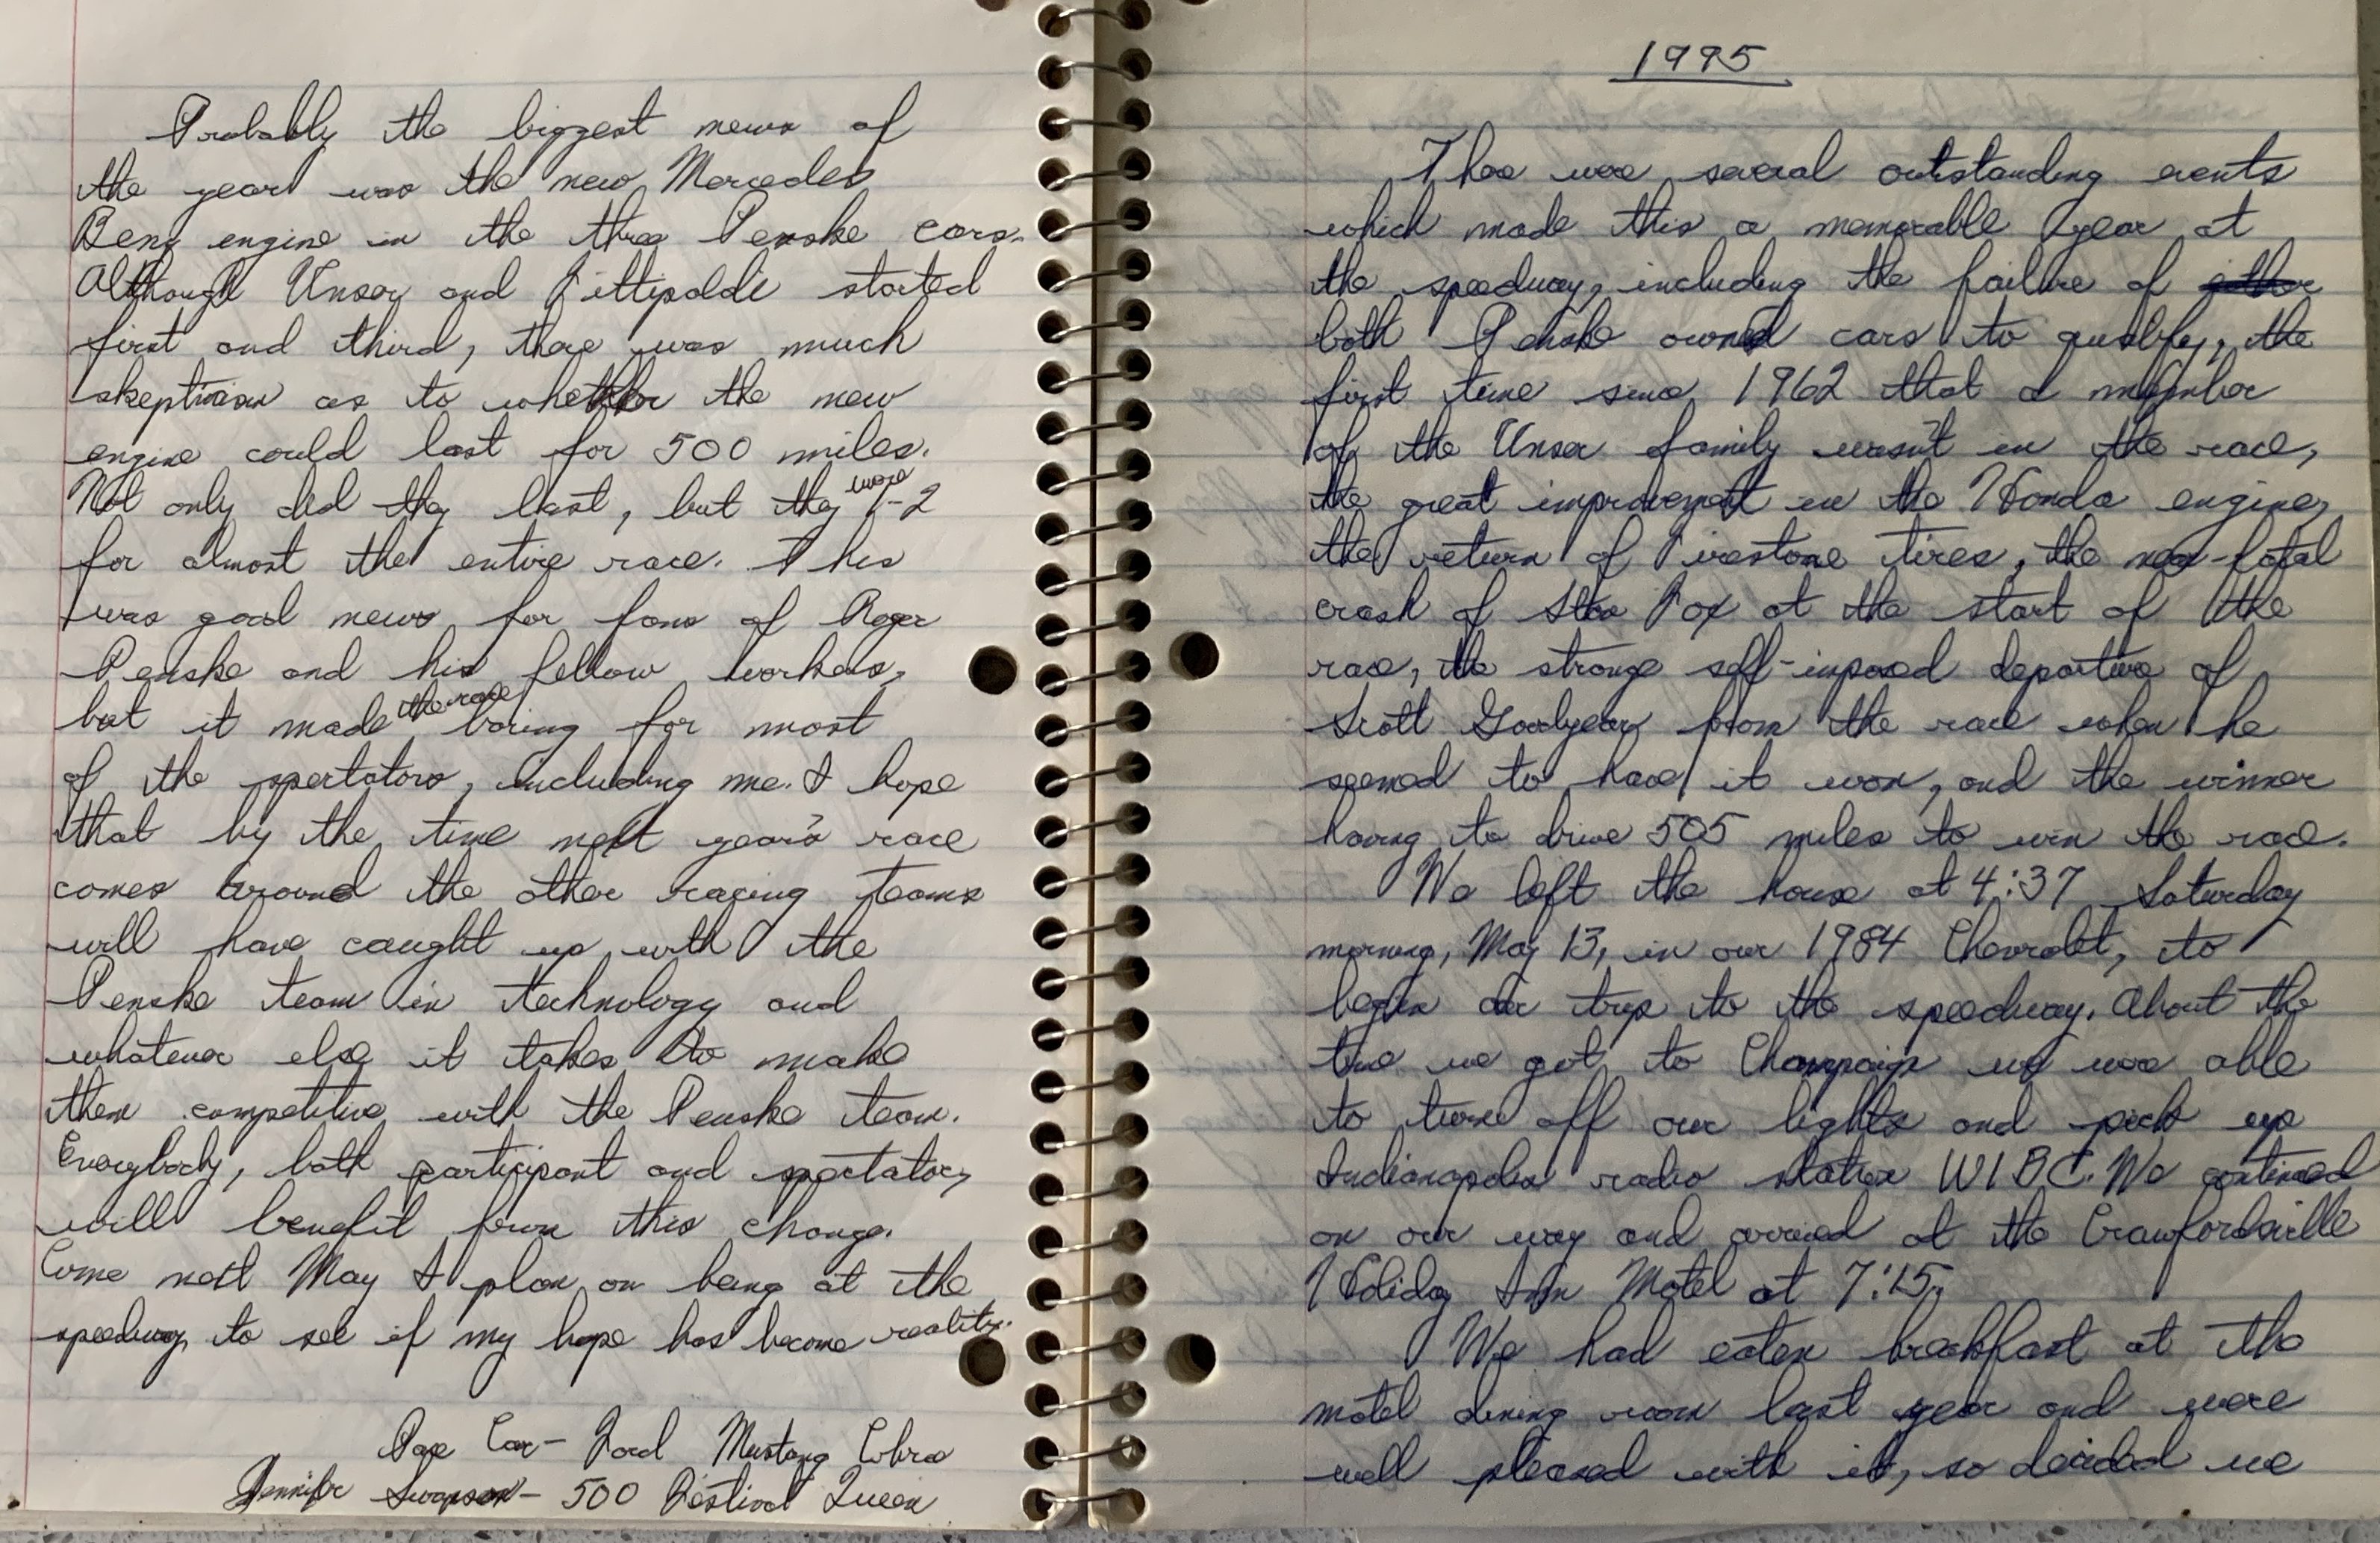 Probably the biggest news of
the year was the new Mercedes
Benz engine in the three Penske cars.
Although Unser and Fittipaldi started
first and third, there was much
skepticism as to whether the new
engine could last for 500 miles.
Not only did they last, but they were 1-2
for almost the entire race. This
was good news for fans of Roger
Penske and his fellow workers,
but it made the race boring for most
of the spectators, including me. I hope
that by the time next year's race
comes around the other racing teams
will have caught up with the
Penske team in technology and
whatever else it takes to make
them competitive with the Penske team.
Everybody, both participant and spectator,
will benefit from this change.
Come next May I plan on being at the
speedway to see if my hope has become reality.
Pace Car - Ford Mustang Cobra
Jennifer Swanson - 500 Festival Queen
1995
There were several outstanding events
which made this a memorable year at
the speedway, including the failure of either
both Penske owned cars to qualify, the
first time since 1962 that a member
of the Unser family wasn't in the race,
the great improvement in the Honda engine,
the return of Firestone tires, the near-fatal
crash of Stan Fox at the start of the
race, the strange self-imposed departure of
Scott Goodyear from the race when he
seemed to have it won, and the winner
having to drive 505 miles to win the race.
We left the house at 4:37 Saturday
morning, May 13, in our 1984 Chevrolet, to
begin our trip to the speedway. About the
time we got to Champaign we were able
to turn off our lights and pick up
Indianapolis radio station WIBC. We continued
on our way and arrived at the Crawfordsville
Holiday Inn Motel at 7:15.
We had eaten breakfast at the
motel dining room last year and were
well pleased with it, so decided we